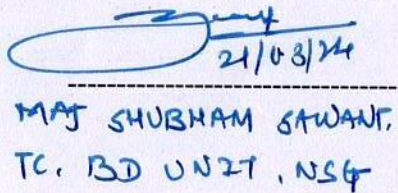 21/03/24
MAJ SHUBHAM SAWANT.
TC. BD UNIT, NSG